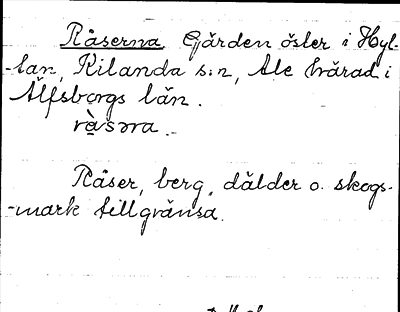 Råserna. Gården öster i Hyl-
-tan, Kilanda s:n, Ale härad i
Älfsborgs län.
ràsəra.
Råser, berg, dälder o. skogs-
-mark tillgränsa.